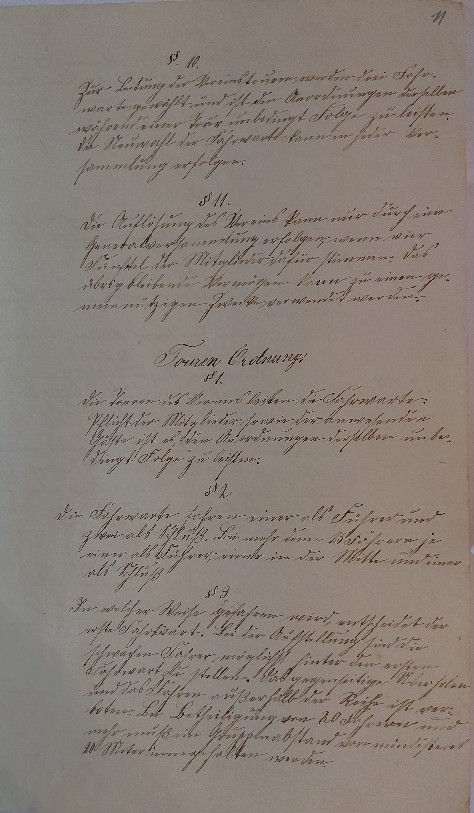 11
§. 10.
Zur Leitung der Vereinstouren werden drei Fahr-
warte gewählt und ist den Anordnungen derselben
während einer Tour unbedingt Folge zu leisten.
Die Neuwahl der Fahrwarte kann in jeder Ver-
sammlung erfolgen.
§ 11.
Die Auflösung des Vereins kann nur durch eine
Generalversammlung erfolgen, wenn vier
Fünftel der Mitglieder dafür stimmen. Das
übrig bleibende Vermögen kann zu einem ge-
meinnützigen Zwecke verwendet werden.
Touren Ordnung.
§ 1.
Die Touren des Vereins leiten die Fahrwarte.
Pflicht der Mitglieder sowie der anwesenden
Gäste ist es den Anordnungen derselben unbe-
dingt Folge zu leisten.
§ 2
Die Fahrwarte fahren einer als Führer und
zwei als Schluß. Bei mehr denn Fahrern je
einer als Führer, einer in der Mitte und einer
als Schluß
§ 3
In welcher Weise gefahren wird, entscheidet der
erste Fahrwart. Bei der Aufstellung sind die
schwachen Fahrer möglichst hinter den ersten
Fahrwart zu stellen. Das gegenseitige Überholen
und das Fahren außerhalb der Reihe ist ver-
boten. Bei Betheiligung von 20 Fahrern und
mehr muß ein Gruppenabstand von mindestens
20 Meter innegehalten werden.